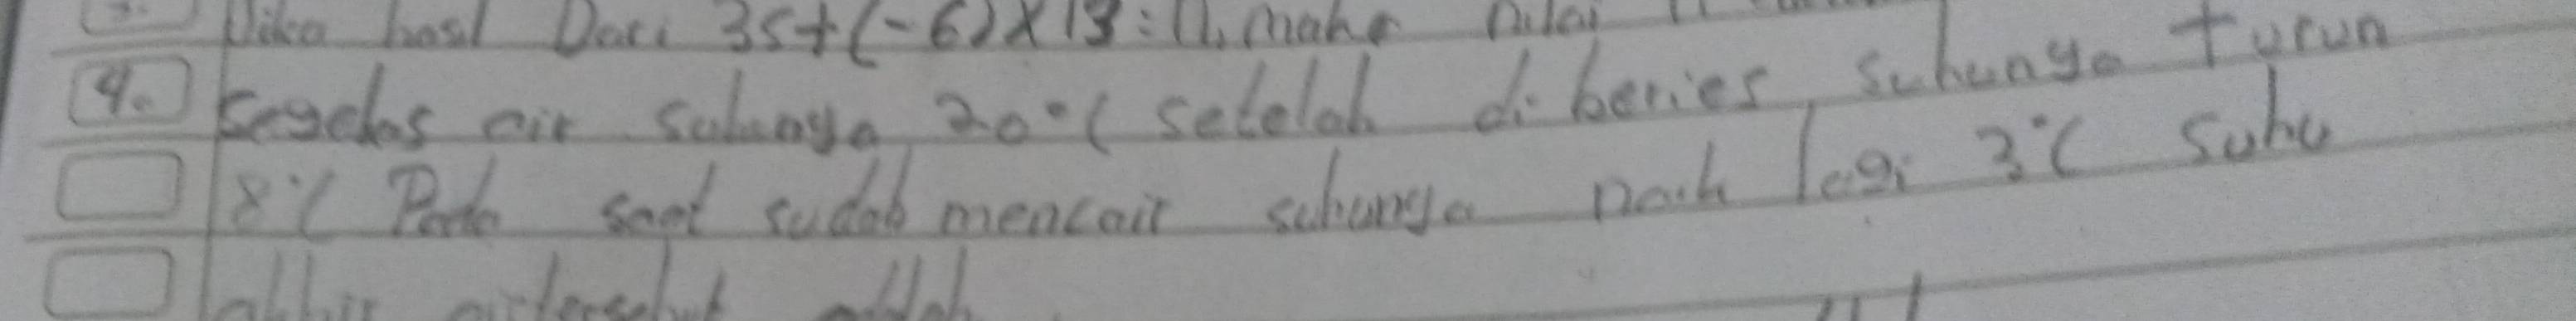 Jika hasil Dari 35+(-6)×13 = n, maka nilai n
4. Segelas air suhunya 20°C setelah di beri es, suhunya turun
8°C Pada saat sudah mencair suhunya naik lagi 3°C suhu
akhir air tersebut adalah